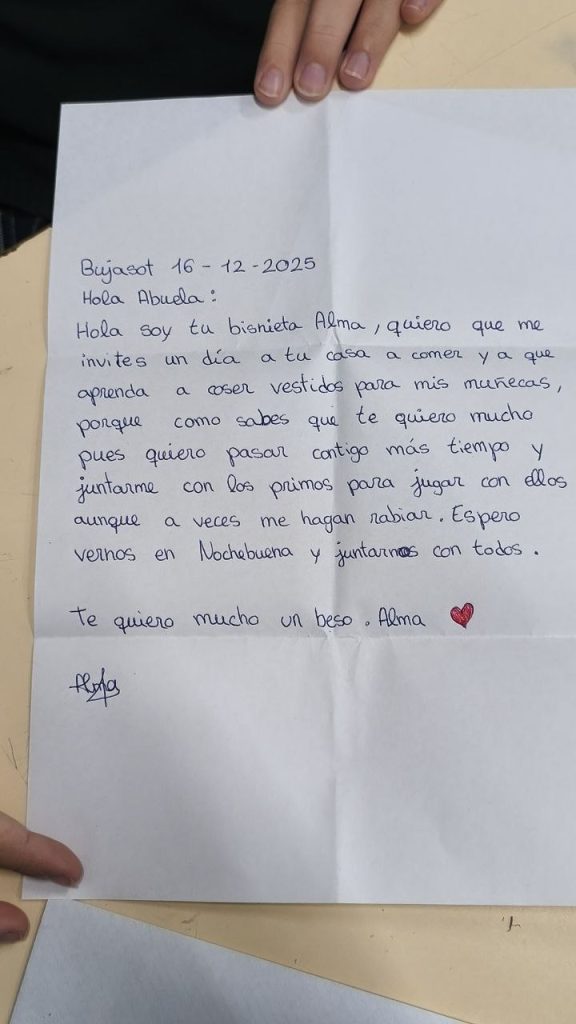 Bujasot 16-12-2025
Hola Abuela:
Hola soy tu bisnieta Alma, quiero que me
invites un día a tu casa a comer y a que
aprenda a coser vestidos para mis muñecas,
porque como sabes que te quiero mucho
pues quiero pasar contigo más tiempo y
juntarme con los primos para jugar con ellos
aunque a veces me hagan rabiar. Espero
vernos en Nochebuena y juntarnos con todos.
Te quiero mucho un beso. Alma ❤
Alma